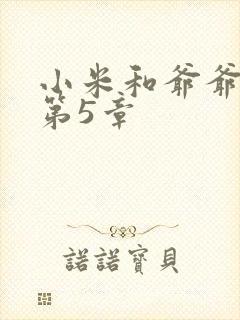 小米和爷爷
第5章
諾諾寶貝